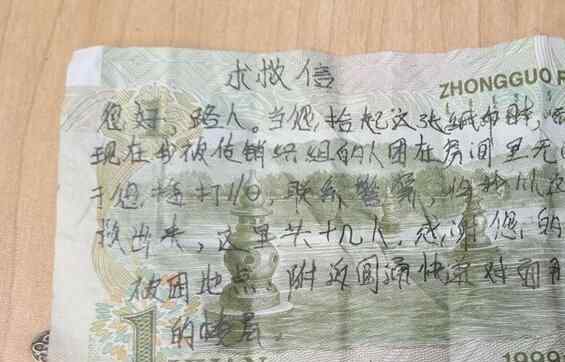 求救信
ZHONGGUO R
您好，路人。当您拾起这张纸币时，
现在我被传销织组的人困在房间里无
于您，拨打110，联系警察，将我从这
救出来，这里共十几人，感谢您，的
被困地点，附近圆通快递对面
的楼房。
1 YUAN
1999